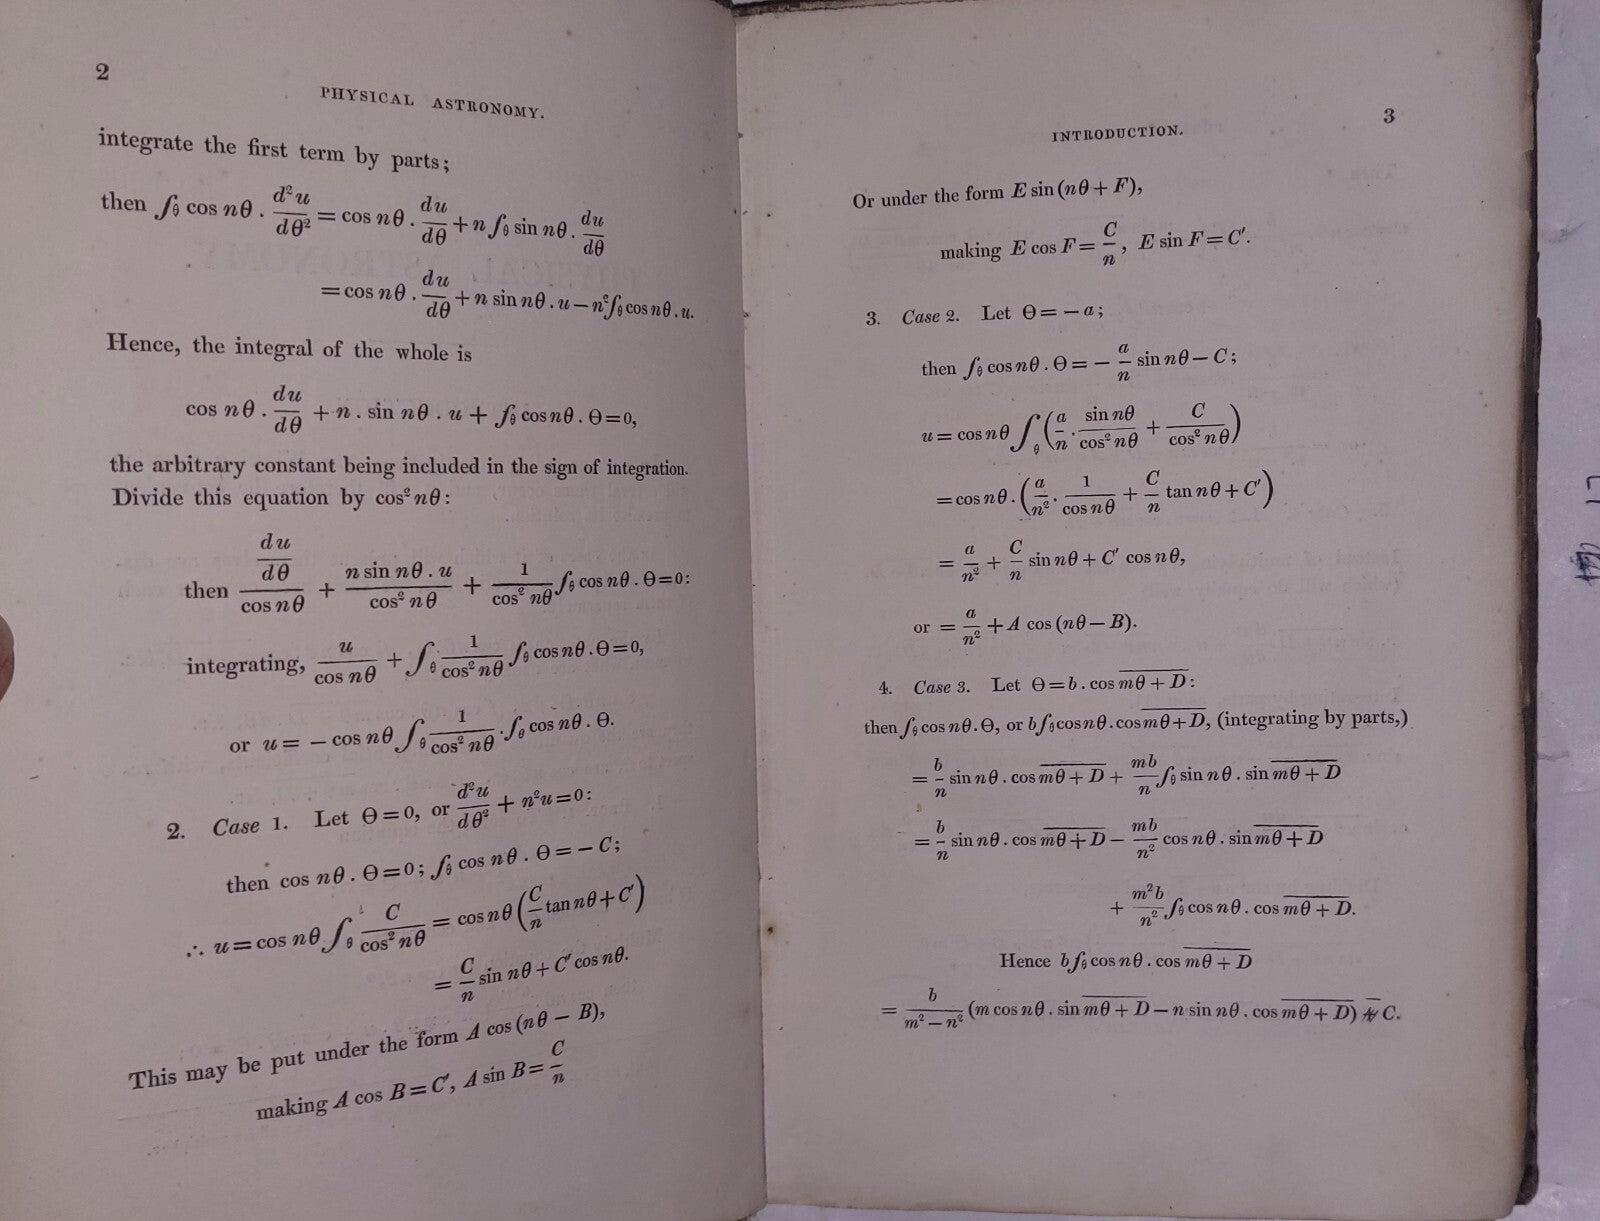 2
PHYSICAL ASTRONOMY.
integrate the first term by parts;
then ∫θ cos nθ . d²u/dθ² = cos nθ . du/dθ + n ∫θ sin nθ . du/dθ
= cos nθ . du/dθ + n sin nθ . u − n² ∫θ cos nθ . u.
Hence, the integral of the whole is
cos nθ . du/dθ + n . sin nθ . u + ∫θ cos nθ . Θ = 0,
the arbitrary constant being included in the sign of integration.
Divide this equation by cos² nθ:
then (du/dθ)/cos nθ + n sin nθ . u/cos² nθ + 1/cos² nθ ∫θ cos nθ . Θ = 0:
integrating, u/cos nθ + ∫θ 1/cos² nθ ∫θ cos nθ . Θ = 0,
or u = − cos nθ ∫θ 1/cos² nθ . ∫θ cos nθ . Θ.
2. Case 1. Let Θ = 0, or d²u/dθ² + n²u = 0:
then cos nθ . Θ = 0; ∫θ cos nθ . Θ = − C;
∴ u = cos nθ ∫θ C/cos² nθ = cos nθ (C/n tan nθ + C′)
= C/n sin nθ + C′ cos nθ.
This may be put under the form A cos (nθ − B),
making A cos B = C′, A sin B = C/n
3
INTRODUCTION.
Or under the form E sin (nθ + F),
making E cos F = C/n, E sin F = C′.
3. Case 2. Let Θ = − a;
then ∫θ cos nθ . Θ = − a/n sin nθ − C;
u = cos nθ ∫θ (a/n . sin nθ/cos² nθ + C/cos² nθ)
= cos nθ . (a/n² . 1/cos nθ + C/n tan nθ + C′)
= a/n² + C/n sin nθ + C′ cos nθ,
or = a/n² + A cos (nθ − B).
4. Case 3. Let Θ = b . cos m̅θ̅ ̅+̅ ̅D̅:
then ∫θ cos nθ . Θ, or b ∫θ cos nθ . cos m̅θ̅ ̅+̅ ̅D̅, (integrating by parts,)
= b/n sin nθ . cos m̅θ̅ ̅+̅ ̅D̅ + mb/n ∫θ sin nθ . sin m̅θ̅ ̅+̅ ̅D̅
= b/n sin nθ . cos m̅θ̅ ̅+̅ ̅D̅ − mb/n² cos nθ . sin m̅θ̅ ̅+̅ ̅D̅
+ m²b/n² ∫θ cos nθ . cos m̅θ̅ ̅+̅ ̅D̅.
Hence b ∫θ cos nθ . cos m̅θ̅ ̅+̅ ̅D̅
= b/(m² − n²) (m cos nθ . sin m̅θ̅ ̅+̅ ̅D̅ − n sin nθ . cos m̅θ̅ ̅+̅ ̅D̅) − C.